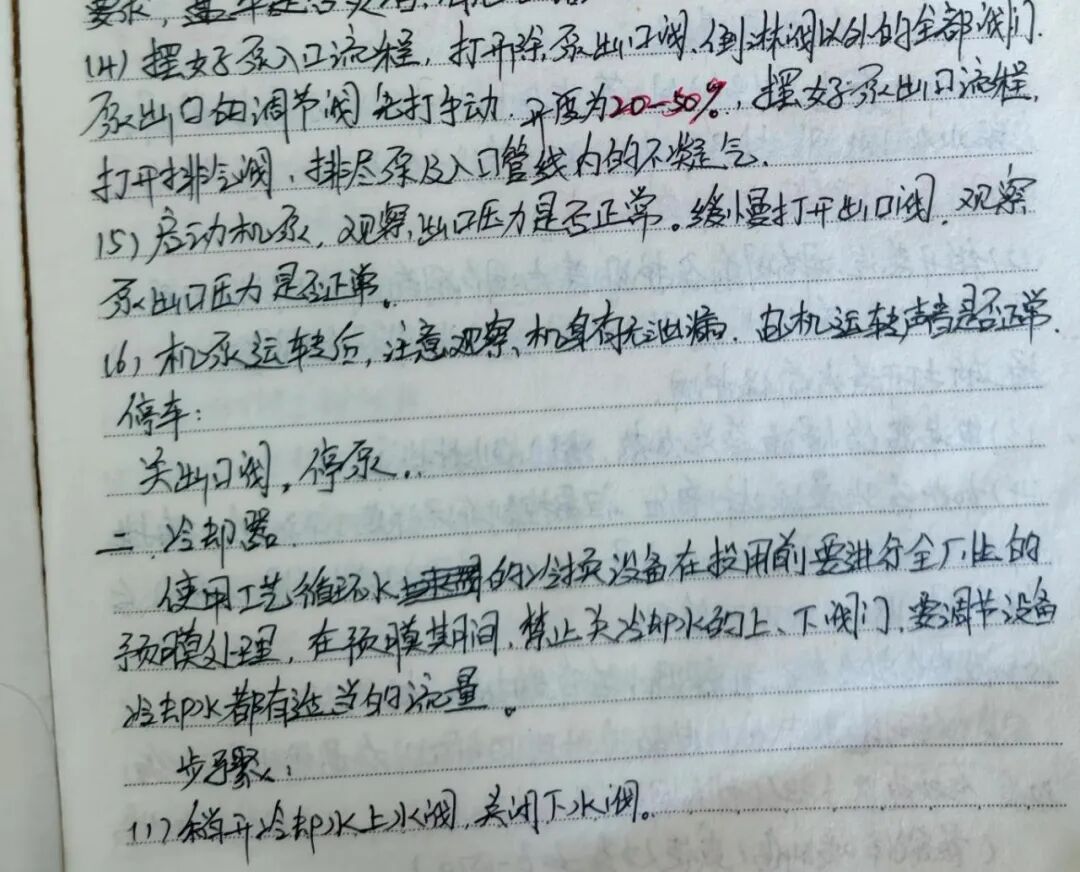 要求，盘车是否灵活，
(4) 摆好泵入口流程，打开除泵出口阀、倒淋阀以外的全部阀门.
泵出口的调节阀先打手动. 开度为20-50%，摆好泵出口流程，
打开排气阀，排尽泵及入口管线内的不凝气.
(5) 启动机泵，观察出口压力是否正常。缓慢打开出口阀，观察
泵出口压力是否正常。
(6) 机泵运转后，注意观察机身有无泄漏. 电机运转声音是否正常.
停车：
关出口阀，停泵..
二 冷却器.
使用工艺循环水的冷换设备在投用前要进行全厂性的
预膜处理，在预膜其间，禁止关冷却水的上、下阀门，要调节设备
冷却水都有适当的流量。
步骤：
(1) 稍开冷却水上水阀，关闭下水阀。